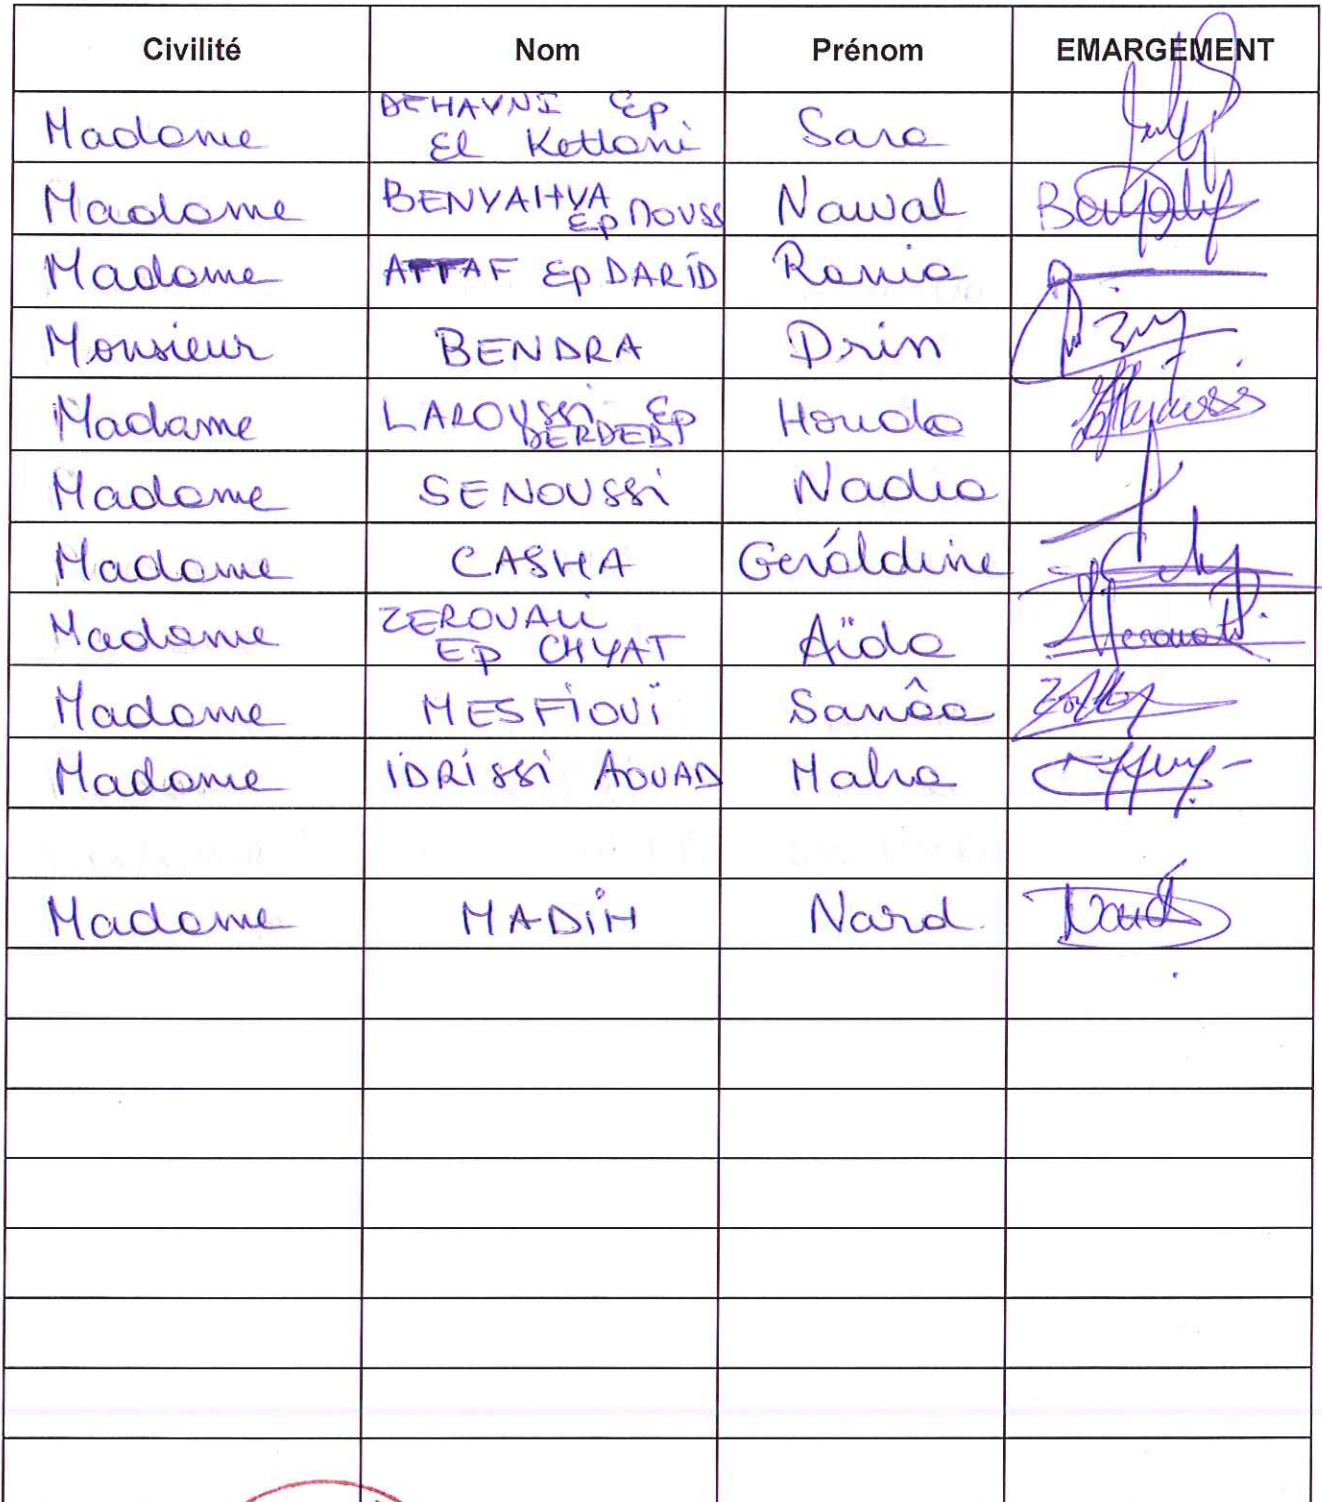 Civilité Nom Prénom EMARGEMENT
Madame DEHAYNI Ep Sara
El Kettani
Madame BENYAHYA Nawal
Ep Mouss
Madame ATTAF Ep DARID Rania
Monsieur BENDRA Driss
Madame LAROUSSI Ep Houda
DERDEBI
Madame SENOUSSI Nadia
Madame CASHA Geráldine
Madame ZEROUALI Aïda
Ep CHYAT
Madame MESFIOUI Sanâa
Madame IDRISSI AOUAD Maha
Madame MADIH Nard